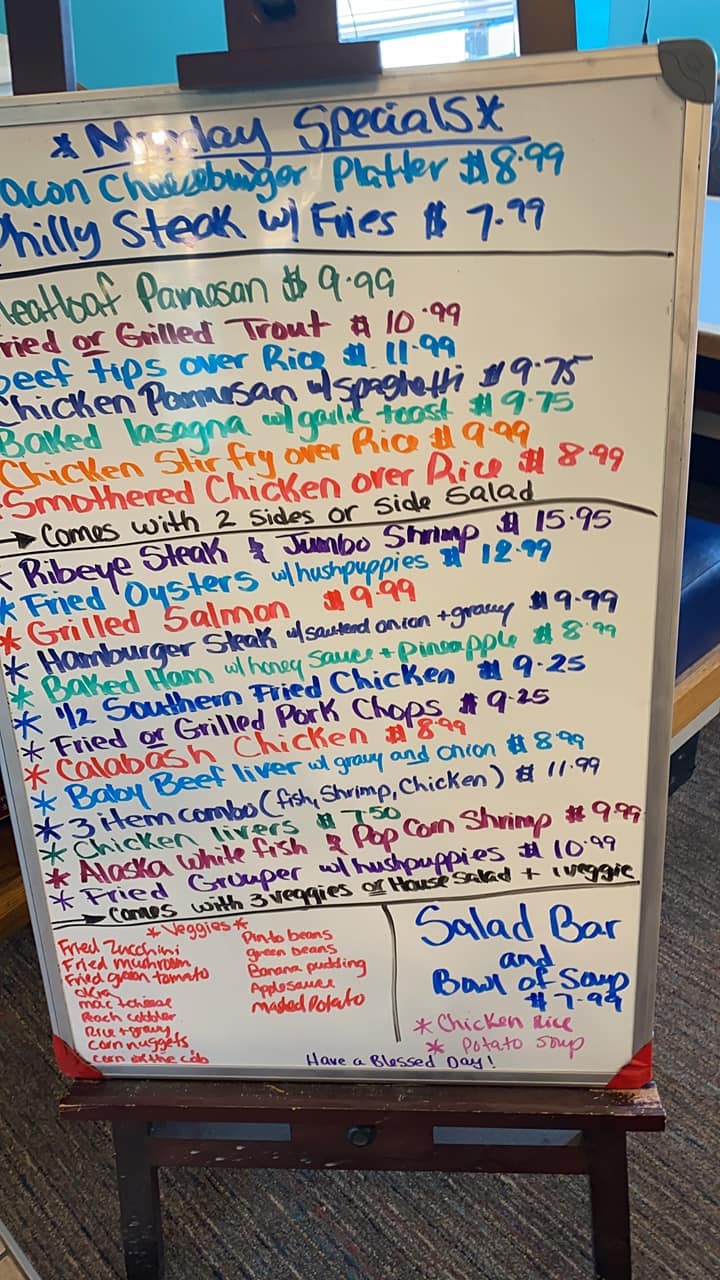 * Monday Specials *
acon Cheeseburger Platter $8.99
Philly Steak w/ Fries $ 7.99
eatloaf Parmesan $ 9.99
ried or Grilled Trout $ 10.99
beef tips over Rice $ 11.99
Chicken Parmesan w/spaghetti $9.75
Baked lasagna w/garlic toast $9.75
Chicken Stir fry over Rice $9.99
Smothered Chicken over Rice $ 8.99
→ Comes with 2 sides or side salad
* Ribeye Steak & Jumbo Shrimp $ 15.95
* Fried Oysters w/hushpuppies $ 12.99
* Grilled Salmon $9.99
* Hamburger Steak w/sauteed onion +gravy $9.99
* Baked Ham w/honey sauce + pineapple $ 8.99
* 1/2 Southern Fried Chicken $ 9.25
* Fried or Grilled Pork Chops $ 9.25
* Calabash Chicken $8.99
* Baby Beef liver w/ gravy and onion $ 8.99
* 3 item combo (fish, Shrimp, Chicken) $ 11.99
* Chicken livers $ 7.50
* Alaska White fish & Pop Corn Shrimp $ 9.99
* Fried Grouper w/hushpuppies $ 10.99
→ Comes with 3 veggies or House Salad + 1 veggie
* Veggies *
Fried Zucchini
Fried mushroom
Fried green tomato
okra
mac + cheese
Peach cobbler
Rice + gravy
corn nuggets
corn on the cob
Pinto beans
green beans
Banana pudding
Applesauce
Mashed Potato
Salad Bar
and
Bowl of Soup
$ 7.99
* Chicken Rice
* Potato Soup
Have a Blessed Day!